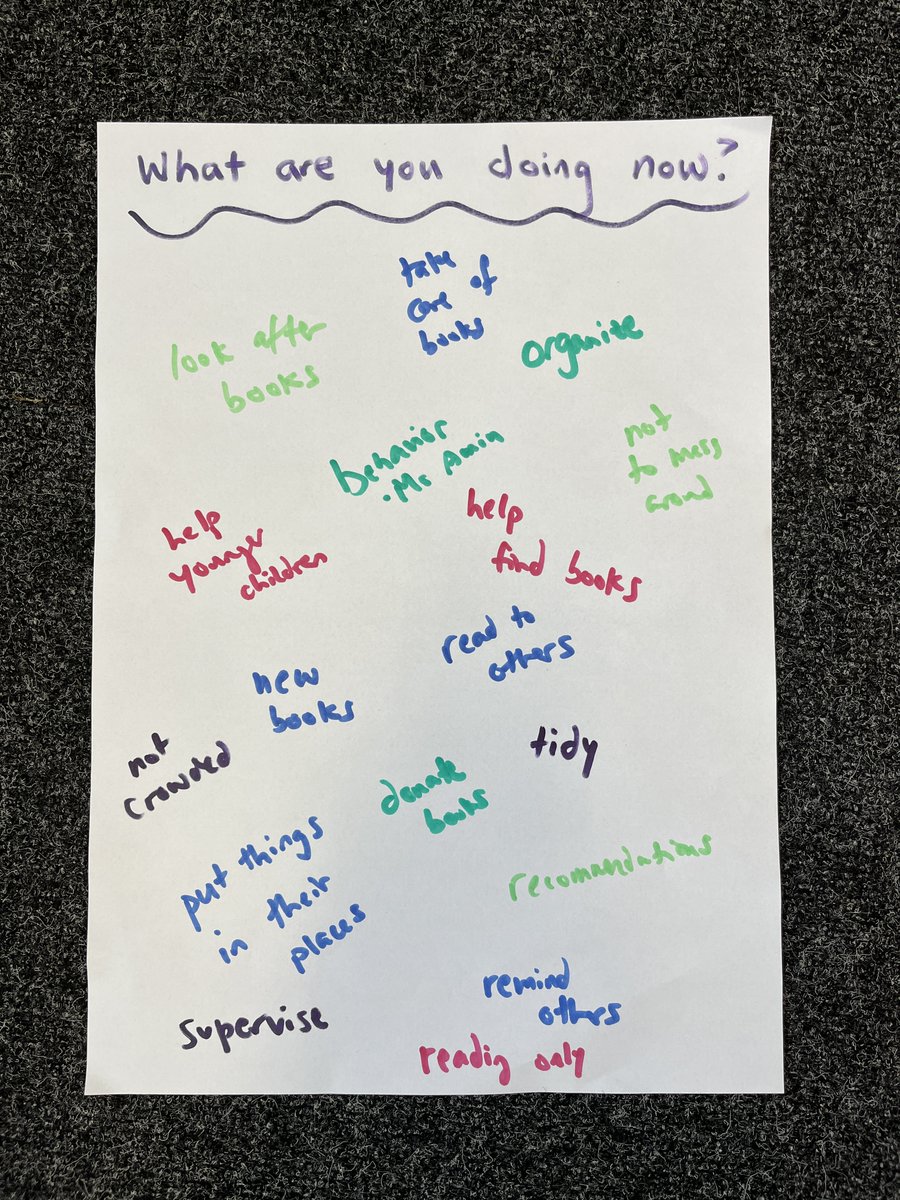 What are you doing now?
take
care of
books
look after
books
organise
behavior
. Mr Amin
not
to mess
around
help
younger
children
help
find books
read to
others
new
books
not
crowded
tidy
donate
books
put things
in their
places
recommendations
supervise
remind
others
reading only